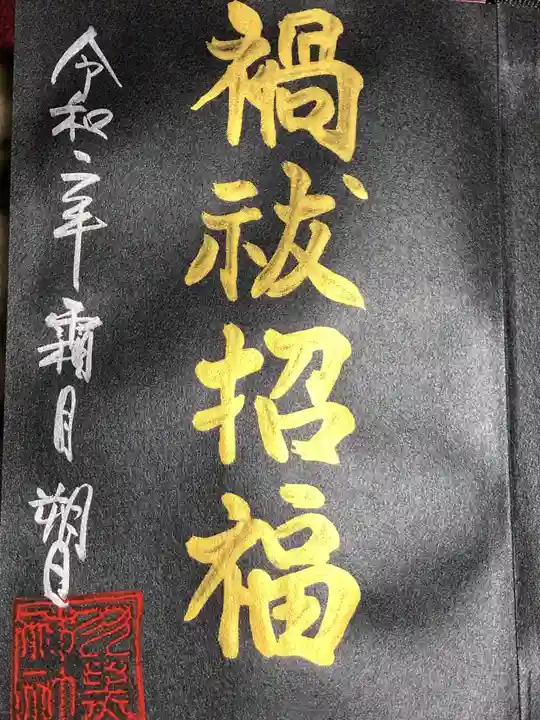 禍祓招福
令和二年霜月朔日